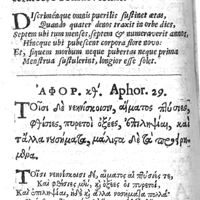 Discriménque omnis puerilis sustinet ætas,
Quando quater denos traxit in orbe dies,
Septem ubi tum menses, septem & numeraverit annos,
Hincque ubi pubescent corpora flore novo:
Et, siquem morbum neque pubertas neque prima
Menstrua sustulerint, longior esse solet.
ἈΦΟΡ. κθʹ. Aphor. 29.
Τοῖσι δὲ νεηνίσκοισιν, αἵματος πτύσιες,
φθίσιες, πυρετοὶ ὀξέες, ἐπιληψίαι, καὶ
τἄλλα νοσήματα, μάλιστα δὲ τὰ προειρη-
μένα.
Τοῖσι νεηνίσκοισι δ᾽, αἵματος αἱ πτύσιές τε,
Καὶ φθίσιες